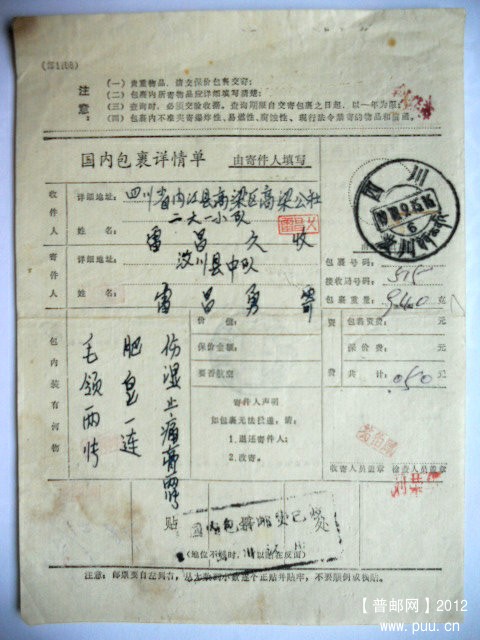 注意：
（一）贵重物品，请交保价包裹交寄；
（二）包裹内所寄物品应详细填写清楚；
（三）查询时，必须交验收据。查询期限自交寄包裹之日起，以一年为限；
（四）包裹内不准夹寄爆炸性、易燃性、腐蚀性、现行法令禁寄的物品和信函。
国内包裹详情单 由寄件人填写
收件人
详细地址：四川省内江县高梁区高梁公社
二大一小队
姓名：雷昌久收
寄件人
详细地址：汶川县中队
姓名：雷昌勇寄
四川
包裹号码：
接收局号码：
包裹重量：克
包内装有何物
伤湿止痛膏
肥皂一连
毛领两件
价值：
保价金额：
要否航空
费
包裹资费：元
保价费：元
共计：050元
寄件人声明
如包裹无法投递，请：
1.退还寄件人；
2.改寄。
收寄人员盖章 检查人员盖章
国内包裹邮资已贴
（地位不够时，可以贴在反面）
【普邮网】2012
www.puu.cn